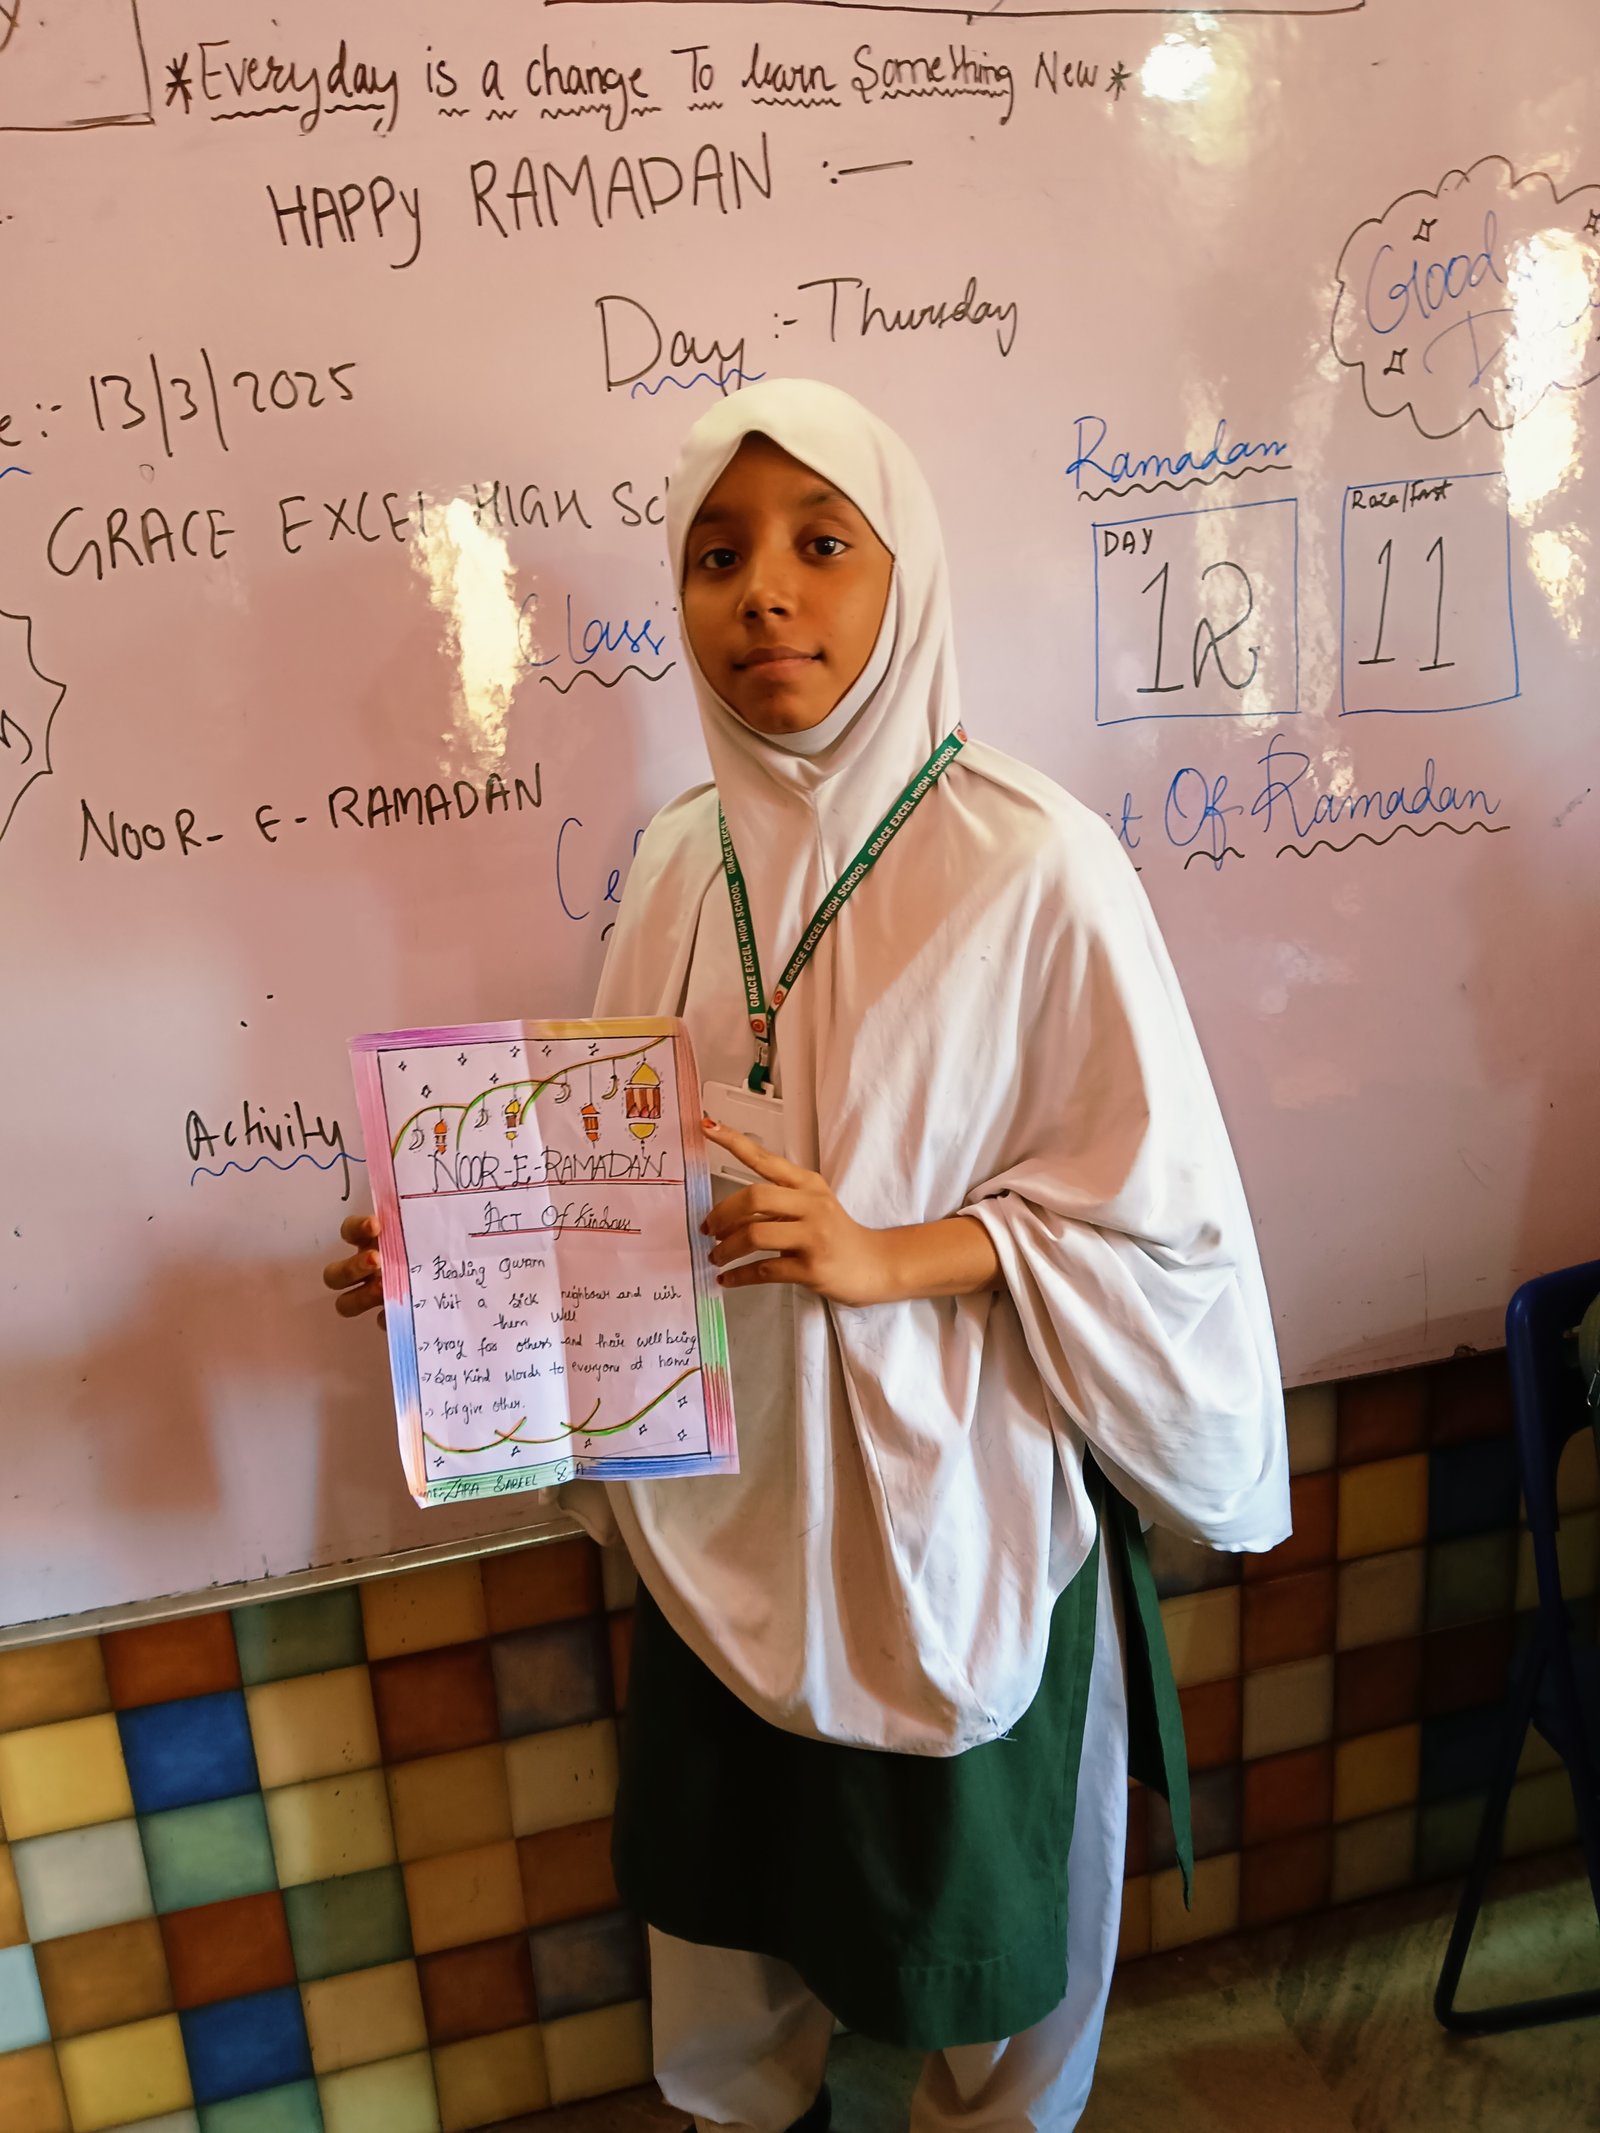 *Everyday is a change To learn Something New*
HAPPY RAMADAN :—
Day :- Thursday
e :- 13/3/2025
Good
GRACE EXCEL HIGH Sc
Ramadan
DAY
12
Raza/Fast
11
Class
NOOR-E-RAMADAN
Ce
t Of Ramadan
Activity
GRACE EXCEL HIGH SCHOOL GRACE EXCEL
GRACE EXCEL HIGH SCHOOL GRACE EXCEL HIGH SCHOOL
NOOR-E-RAMADAN
ACT Of Kindness
=> Reading Quran
=> Visit a sick neighbour and wish
them well
=> pray for others and their well being
=> Say kind words to everyone at home
=> forgive other.
ZARA